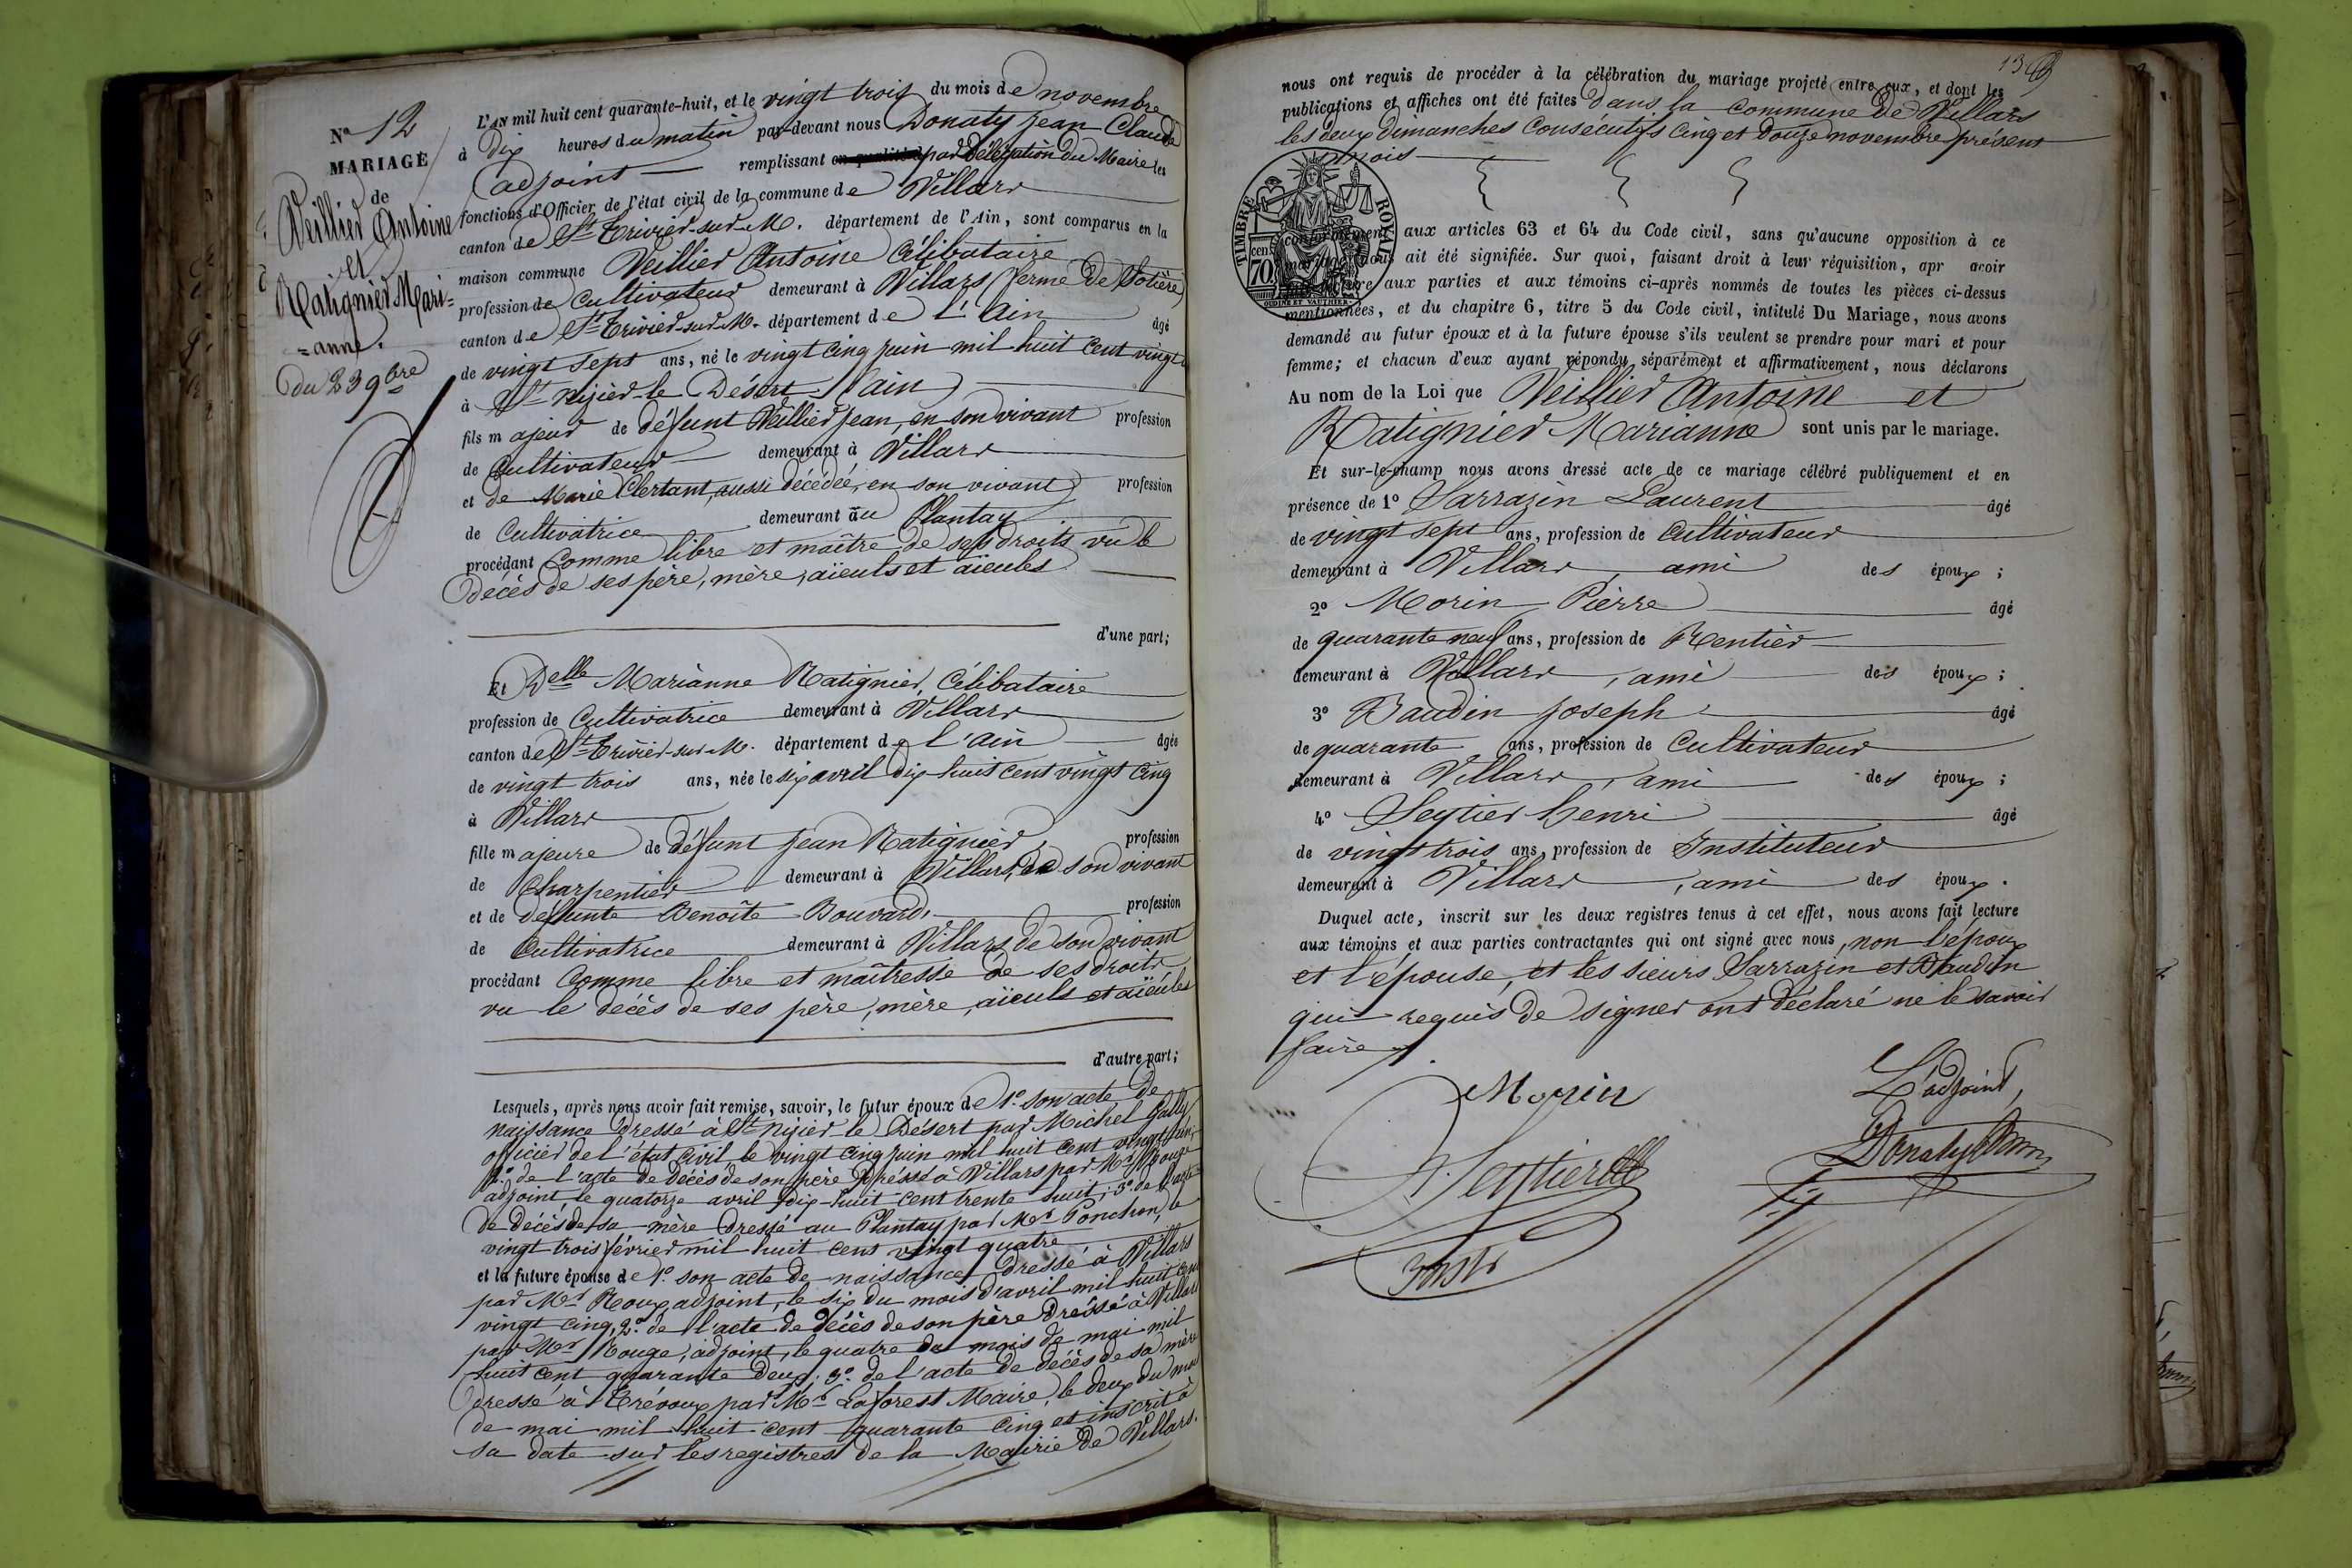 No 12
MARIAGE
de
Veillier Antoine
et
Ratignier Mari=
=anne.
Du 23 9bre
L'AN mil huit cent quarante-huit, et le vingt trois du mois de novembre
à dix heures du matin par-devant nous Donaty Jean Claude
adjoint remplissant en qualité d par délégation du Maire les
fonctions d'Officier de l'état civil de la commune de Villars
canton de St Trivier-sur-M. département de l'Ain, sont comparus en la
maison commune Veillier Antoine Célibataire
profession de Cultivateur demeurant à Villars (ferme de Sotière)
canton de St Trivier-sur-M. département de L'Ain âgé
de vingt sept ans, né le vingt cinq juin mil huit cent vingt
à St Nizier-le Désert (ain)
fils majeur de défunt Veillier Jean, en son vivant profession
de Cultivateur demeurant à Villars
et de Marie Clertant, aussi décédée, en son vivant profession
de Cultivatrice demeurant au Plantay
procédant Comme libre et maître de ses droits vu le
décès de ses père, mère, aïeuls et aïeules
d'une part;
Et Delle Marianne Ratignier, Célibataire
profession de Cultivatrice demeurant à Villars
canton de St Trivier-sur-M. département de l'Ain âgée
de vingt trois ans, née le six avril dix-huit cent vingt cinq
à Villars
fille majeure de défunt Jean Ratignier, profession
de Charpentier demeurant à Villars, de son vivant
et de défunte Benoîte Bouvard, profession
de Cultivatrice demeurant à Villars de son vivant
procédant Comme libre et maîtresse de ses droits
vu le décès de ses père, mère, aïeuls et aïeules
d'autre part;
Lesquels, après nous avoir fait remise, savoir, le futur époux de 1o. son acte de
naissance dressé à St Nizier-le Désert par Michel
officier de l'état civil le vingt cinq juin mil huit cent vingt un;
2o. de l'acte de décès de son père dressé à Villars par Mr Rouge
adjoint, le quatorze avril dix-huit cent trente huit; 3o. de l'acte
de décès de sa mère dressé au Plantay par Mr Ponchon, le
vingt trois février mil huit cent vingt quatre
et la future épouse de 1o. son acte de naissance dressé à Villars
par Mr Roux, adjoint, le six du mois d'avril mil huit cent
vingt cinq, 2o. de l'acte de décès de son père dressé à Villars
par Mr Rouge, adjoint, le quatre du mois de mai mil
huit cent quarante deux; 3o. de l'acte de décès de sa mère
dressé à Trévoux par Mr Laforest Maire, le deux du mois
de mai mil huit cent quarante cinq et inscrit à
sa date sur les registres de la Mairie de Villars.
13
nous ont requis de procéder à la célébration du mariage projeté entre eux, et dont les
publications et affiches ont été faites dans la commune de Villars
les deux dimanches consécutifs cinq et douze novembre présent
mois
TIMBRE ROYAL
cent. 70
OUDINE ET VAUTHIER
conformément aux articles 63 et 64 du Code civil, sans qu'aucune opposition à ce
mariage nous ait été signifiée. Sur quoi, faisant droit à leur réquisition, apr avoir
lecture aux parties et aux témoins ci-après nommés de toutes les pièces ci-dessus
mentionnées, et du chapitre 6, titre 5 du Code civil, intitulé Du Mariage, nous avons
demandé au futur époux et à la future épouse s'ils veulent se prendre pour mari et pour
femme; et chacun d'eux ayant répondu séparément et affirmativement, nous déclarons
Au nom de la Loi que Veillier Antoine et
Ratignier Marianne sont unis par le mariage.
Et sur-le-champ nous avons dressé acte de ce mariage célébré publiquement et en
présence de 1o Sarrazin Laurent âgé
de vingt sept ans, profession de Cultivateur
demeurant à Villars, ami des époux;
2o Morin Pierre âgé
de quarante neuf ans, profession de Rentier
demeurant à Villars, ami des époux;
3o Baudin Joseph âgé
de quarante ans, profession de Cultivateur
demeurant à Villars, ami des époux;
4o Seytier henri âgé
de vingt trois ans, profession de Instituteur
demeurant à Villars, ami des époux.
Duquel acte, inscrit sur les deux registres tenus à cet effet, nous avons fait lecture
aux témoins et aux parties contractantes qui ont signé avec nous, non l'époux
et l'épouse, et les sieurs Sarrazin et Baudin
qui requis de signer ont déclaré ne le savoir
faire.
Morin
L'adjoint,
H. Seytier
Donaty